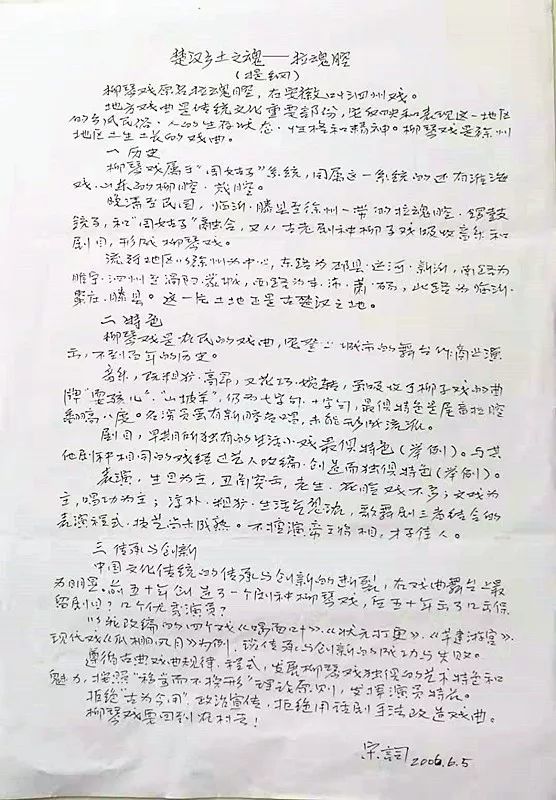 楚汉乡土之魂——拉魂腔
（提纲）
柳琴戏原名拉魂腔，在安徽叫泗州戏。
地方戏曲是传统文化重要部份，它敘唱和表现这一地区
的乡风民俗·人的生存状态·性格和精神。柳琴戏是徐州
地区土生土长的戏曲。
一 历史
柳琴戏属于"周姑子"系统，同属这一系统的还有淮海
戏、山东的柳腔·茂腔。
晚清至民国，临沂·滕县至徐州一带的拉魂腔·锣鼓
铳子，和"周姑子"融合，又从古老剧种柳子戏吸收音乐和
剧目，形成柳琴戏。
流行地区以徐州为中心，东路为邳县·运河·新沂，南路为
睢宁·泗州至涡阳·蒙城，西路为丰·沛·萧·砀，北路为临沂·
枣庄·滕县。这一片土地正是古楚汉之地。
二 特色
柳琴戏是农民的戏曲，它登上城市的舞台作商业演
出，不到百年的历史。
音乐，既粗犷·高昂，又花巧·婉转，虽吸收了柳子戏的曲
牌"耍孩儿"、"山坡羊"，仍为七字句·十字句，最俱特色是尾音拉腔
翻高八度。各演员虽有新腔各唱，未能形成流派。
剧目，早期所独有的生活小戏最俱特色（举例）。与其
他剧种相同的戏经过艺人改编·创造而独俱特色（举例）。
表演，生旦为主，丑角突出，老生·花脸戏不多；文戏为
主，唱功为主；淳朴·粗犷·生活气忽浓，歌舞剧三者结合的
表演程式·技艺尚未成熟。不擅演帝王将相，才子佳人。
三 传承与创新
中国文化传统的传承与创新的断裂，在戏曲舞台上最
为明显。前五十年创造了一个剧种柳琴戏，后五十年云了几云保
留剧目？几个优秀演员？
以我改编的四个戏《喝面叶》、《状元打更》、《芈建游宫》、
现代戏《瓜棚风月》为例，谈传承与创新的成功与失败。
遵循古典戏曲规律·程式，发展柳琴戏独俱的艺术特色和
魅力，按照"移步而不换形"理论原则，发挥演员特长。
拒绝"古为今用"政治宣传，拒绝用话剧手法改造戏曲。
柳琴戏要回到农村去！
宋词 2006.6.5